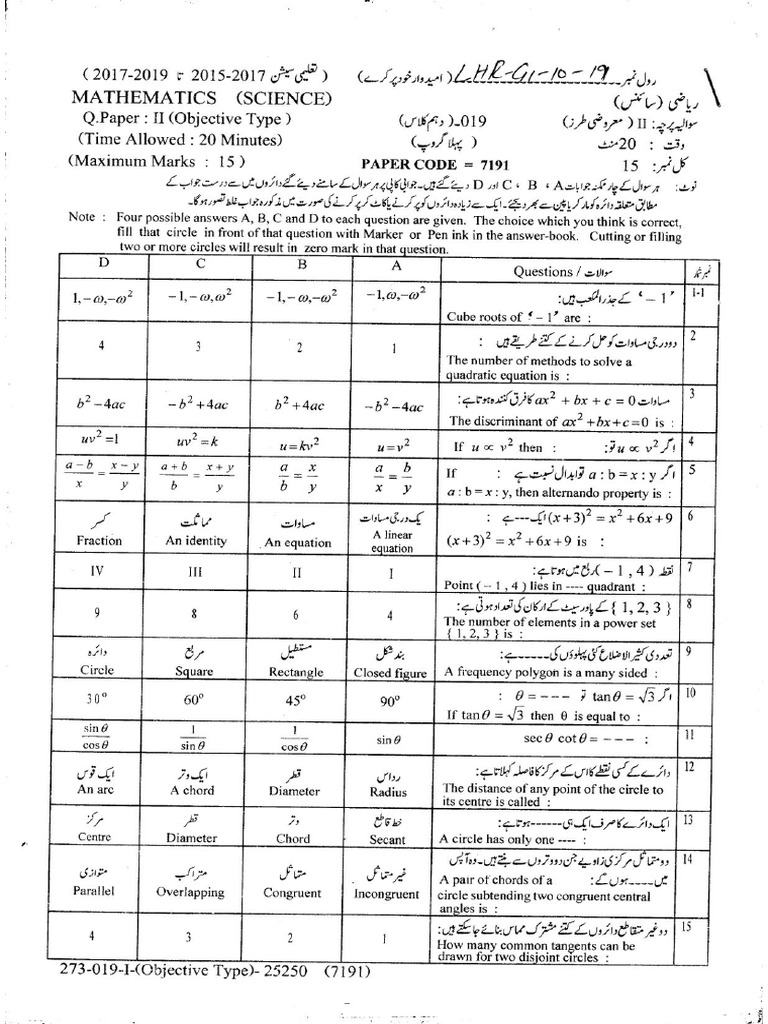 ( تعلیمی سیشن 2015-2017 تا 2017-2019 )
رول نمبر LHR-G1-10-19 ( امیدوار خود پر کرے )
MATHEMATICS (SCIENCE)
ریاضی ( سائنس )
Q.Paper : II (Objective Type )
019-( دہم کلاس )
سوالیہ پرچہ : II ( معروضی طرز )
(Time Allowed : 20 Minutes)
( پہلا گروپ )
وقت : 20 منٹ
(Maximum Marks : 15 )
PAPER CODE = 7191
کل نمبر : 15
نوٹ : ہر سوال کے چار ممکنہ جوابات A ، B ، C اور D دیئے گئے ہیں۔ جوابی کاپی پر ہر سوال کے سامنے دیئے گئے دائروں میں سے درست جواب کے
مطابق متعلقہ دائرہ کو مارکر یا پین سے بھر دیجئے۔ ایک سے زیادہ دائروں کو پر کرنے یا کاٹ کر پر کرنے کی صورت میں مذکورہ جواب غلط تصور ہوگا۔
Note : Four possible answers A, B, C and D to each question are given. The choice which you think is correct,
fill that circle in front of that question with Marker or Pen ink in the answer-book. Cutting or filling
two or more circles will result in zero mark in that question.
D C B A Questions / سوالات نمبر شمار
1,−ω,−ω² −1,−ω,ω² −1,−ω,−ω² −1,ω,−ω² ‘ −1 ’ کے جذر المکعب ہیں : 1-1
Cube roots of ‘ − 1 ’ are :
4 3 2 1 دو درجی مساوات کو حل کرنے کے کتنے طریقے ہیں : 2
The number of methods to solve a
quadratic equation is :
b² −4ac −b² +4ac b² +4ac −b² −4ac مساوات ax² + bx + c = 0 کا فرق کنندہ ہوتا ہے : 3
The discriminant of ax² +bx+c=0 is :
uv² =1 uv² =k u=kv² u=v² If u ∝ v² then : اگر u ∝ v² تو : 4
(a−b)/x = (x−y)/y (a+b)/b = (x+y)/y a/b = x/y a/x = b/y If اگر a : b = x : y تو ابدال نسبت ہے : 5
a : b = x : y, then alternando property is :
کسر مماثلت مساوات یک درجی مساوات (x+3)² = x² +6x+9 ایک --- ہے : 6
Fraction An identity An equation A linear
equation
(x+3)² = x² +6x+9 is :
IV III II I نقطہ ( −1 , 4 ) ربع میں ہوتا ہے : 7
Point ( − 1 , 4 ) lies in ---- quadrant :
9 8 6 4 { 1, 2, 3 } کے پاور سیٹ کے ارکان کی تعداد ہوتی ہے : 8
The number of elements in a power set
{ 1, 2, 3 } is :
دائرہ مربع مستطیل بند شکل تعددی کثیر الاضلاع کئی پہلوؤں کی ----- ہے : 9
Circle Square Rectangle Closed figure A frequency polygon is a many sided :
30° 60° 45° 90° اگر tanθ = √3 تو θ = --- : 10
If tanθ = √3 then θ is equal to :
sinθ/cosθ 1/sinθ 1/cosθ sinθ secθ cotθ = --- : 11
ایک قوس ایک وتر قطر رداس دائرے کے کسی نقطے کا اس کے مرکز کا فاصلہ کہلاتا ہے : 12
An arc A chord Diameter Radius The distance of any point of the circle to
its centre is called :
مرکز قطر وتر خط قاطع ایک دائرے کا صرف ایک ہی ------ ہوتا ہے : 13
Centre Diameter Chord Secant A circle has only one ---- :
متوازی متراکب متماثل غیر متماثل دو متماثل مرکزی زاویے جن دو وتروں سے بنتے ہیں۔ وہ آپس 14
میں ---- ہوں گے :
Parallel Overlapping Congruent Incongruent A pair of chords of a
circle subtending two congruent central
angles is :
4 3 2 1 دو غیر متقاطع دائروں کے کتنے مشترک مماس بنائے جا سکتے ہیں : 15
How many common tangents can be
drawn for two disjoint circles :
273-019-I-(Objective Type)- 25250 (7191)